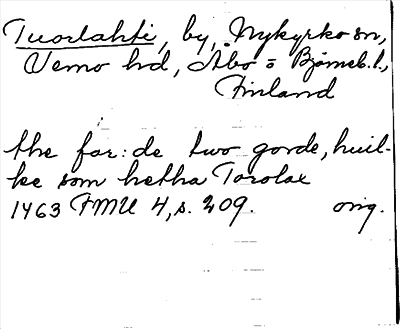 Tuorlahti, by, Nykyrko sn,
Vemo hd, Åbo = Björneb. l.,
Finland
the far: de two gorde, huil-
ke som hetha Torolax
1463 FMU 4, s. 209. orig.